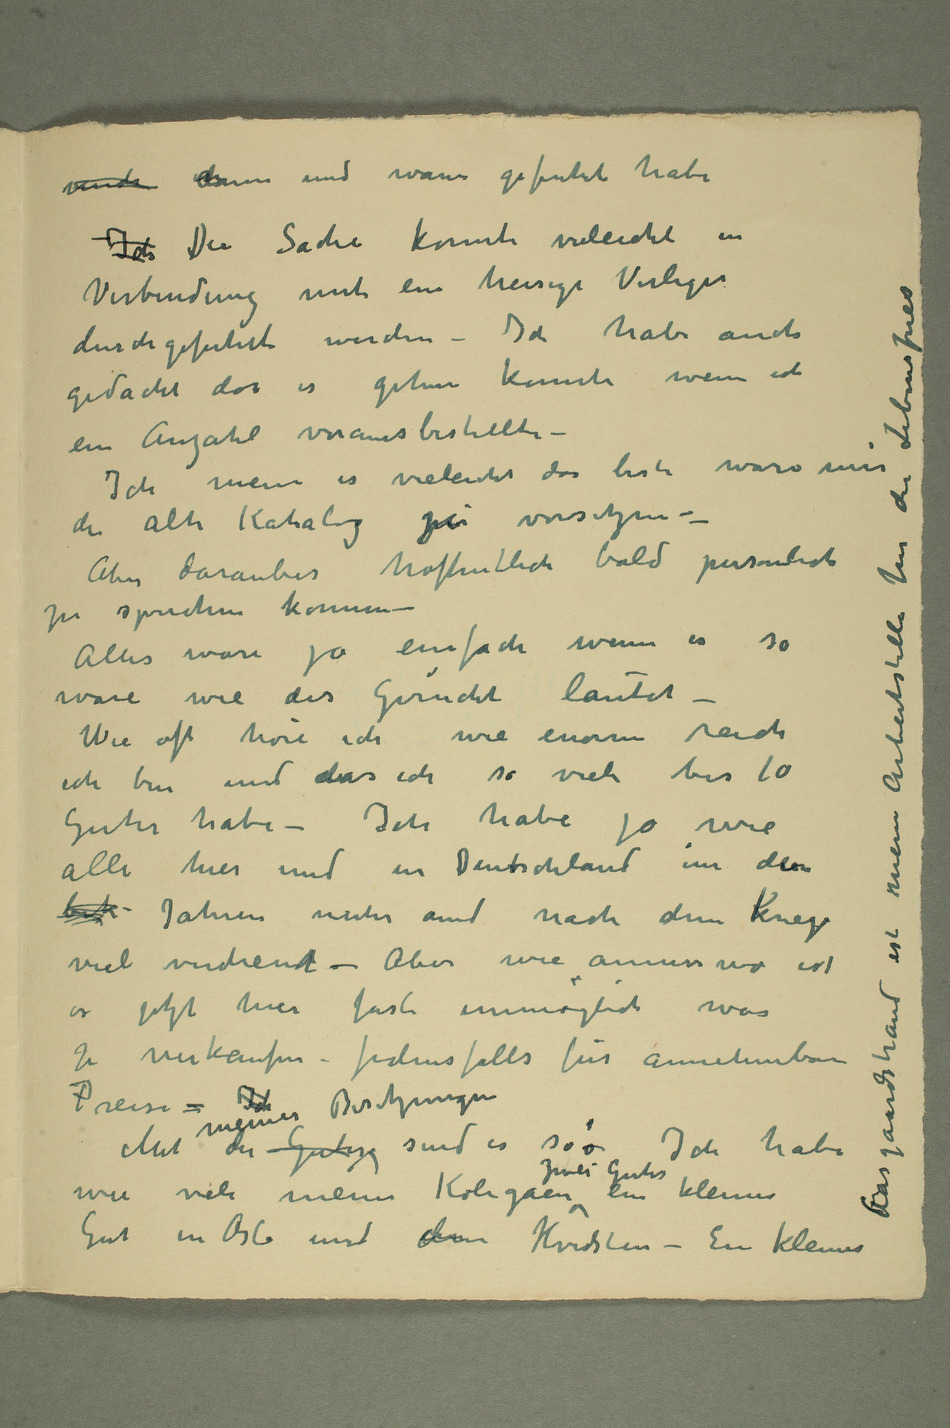 dann und wann gefürhtet habe
Ich Die Sache konnte vieleicht in
Verbindung mit ein hiesige Verleger
durchgefuhrt werden – Ich habe auch
gedacht das es gehen konnte wenn ich
ein Anzahl vorausbestellte –
Ich meine es vieleicht das beste ware mir
die alte Katalog zu vorsetzen –
Aber darauber hoffentlich bald persönlich
zu sprechen konnen –
Alles ware ja einfach wenn es so
ware wie das Gerücht lautet –
Wie oft höre ich wie enorm reich
ich bin und das ich so viele bis 10
Guter habe – Ich habe ja wie
alle hier und in Deutschland in den
Jahren unter und nach dem Kriege
viel verdient – Aber wie anderswo ist
es jetzt hier fast unmöglich was
zu verkaufen – jedensfalls für annehmbare
Preise – Ich
Mit die Guter meiner Besitzungen sind es so: Ich habe
wie viele meiner Kolegaen zwei Guter ein kleines
Gut in Oslo und den Hvidsten – Ein kleines
Aasgaardstrand ist mein Arbeitstelle für die Lebensfries